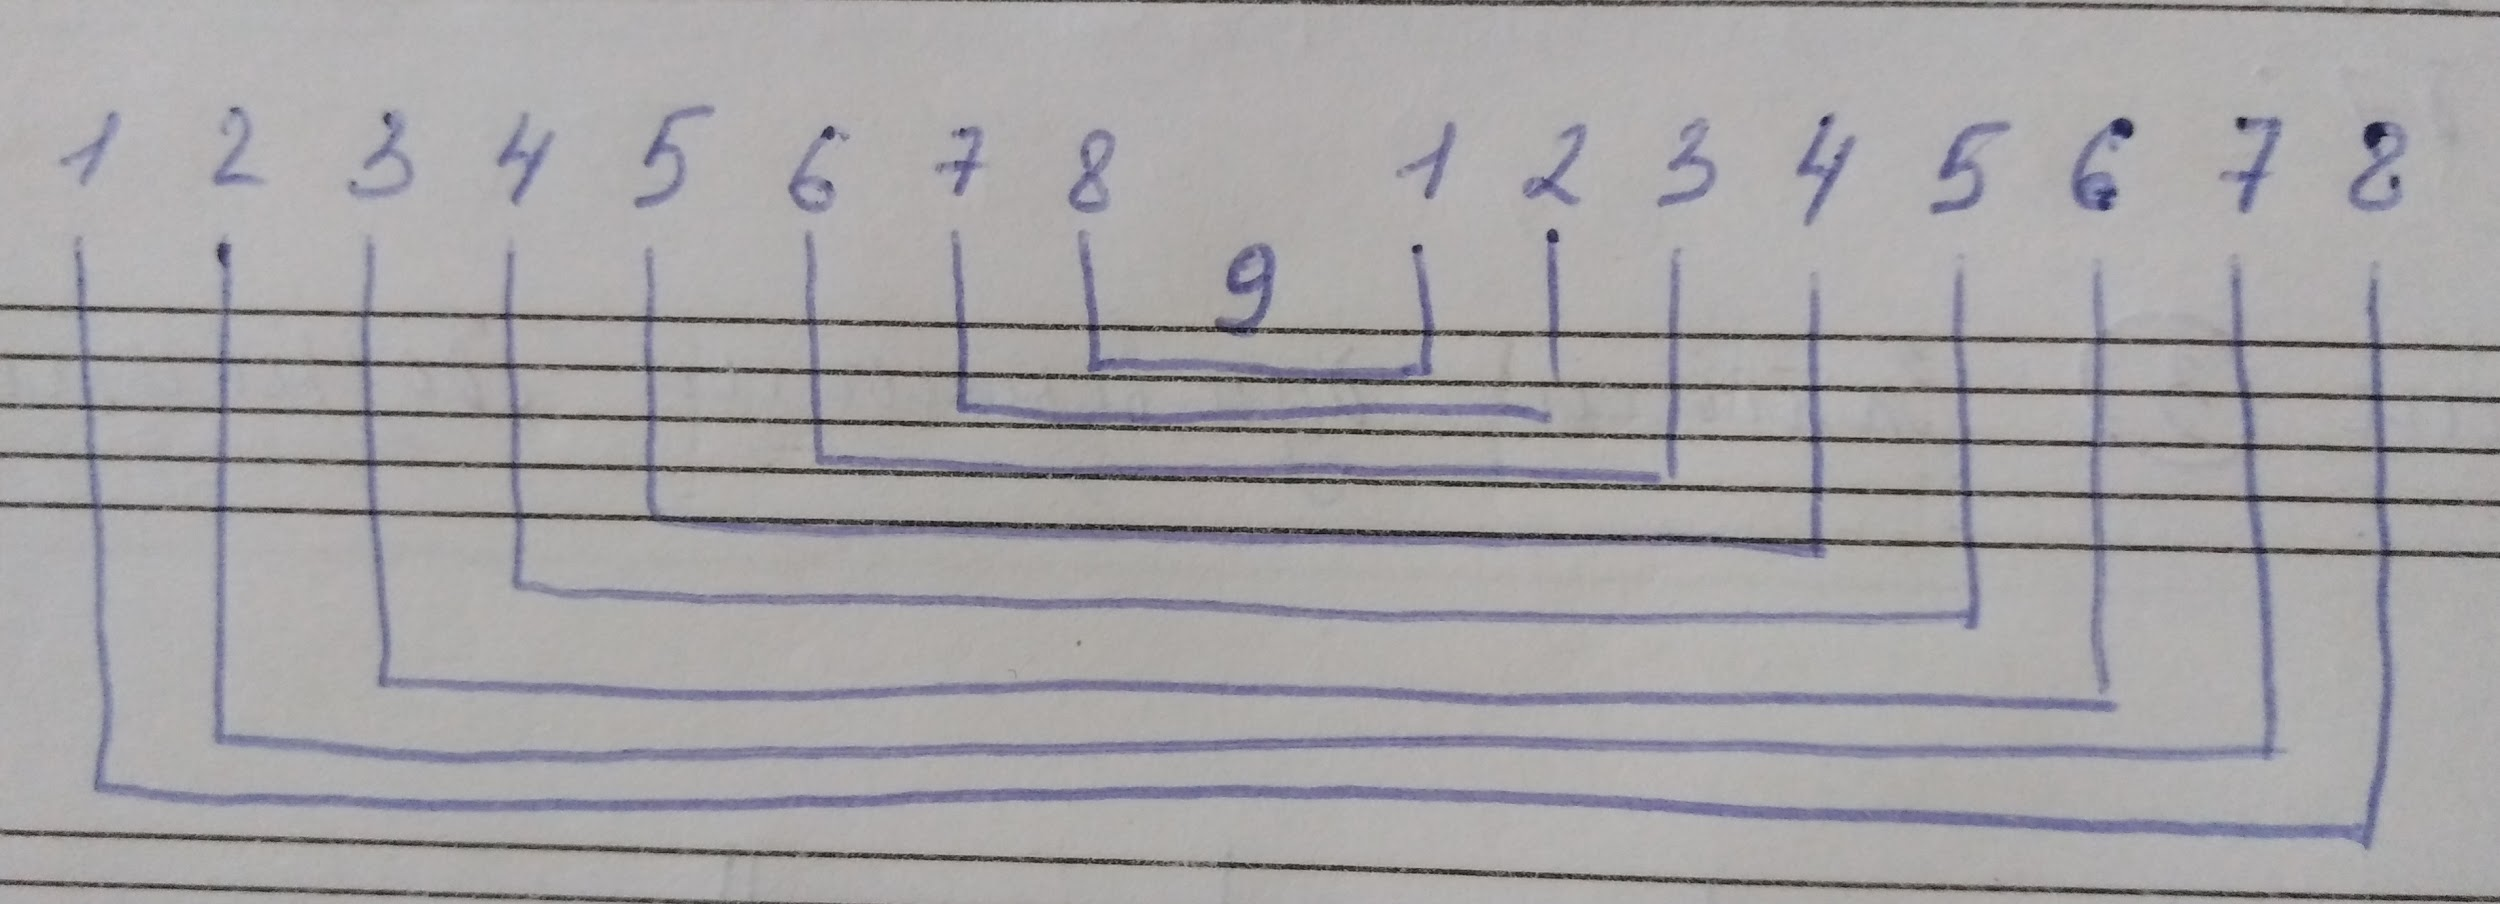 1 2 3 4 5 6 7 8 1 2 3 4 5 6 7 8
9